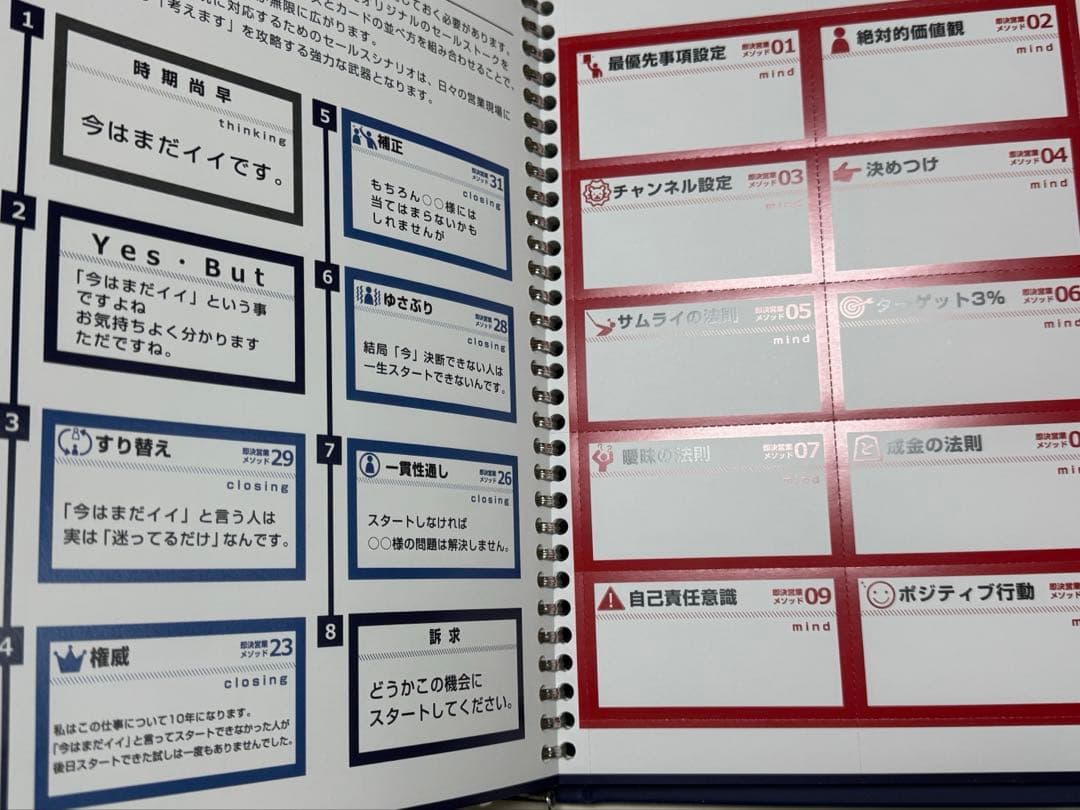 しておく必要があります。
オリジナルのセールストークを
スとカードの並べ方を組み合わせることで、
が無限に広がります。
に対応するためのセールスシナリオは、日々の営業現場に
「考えます」を攻略する強力な武器となります。
1
時期尚早
thinking
今はまだイイです。
2
Yes・But
「今はまだイイ」という事
ですよね
お気持ちよく分かります
ただですね。
3
すり替え
即決営業
メソッド29
closing
「今はまだイイ」と言う人は
実は「迷ってるだけ」なんです。
4
権威
即決営業
メソッド23
closing
私はこの仕事について10年になります。
「今はまだイイ」と言ってスタートできなかった人が
後日スタートできた試しは一度もありませんでした。
5
補正
即決営業
メソッド31
closing
もちろん○○様には
当てはまらないかも
しれませんが
6
ゆさぶり
即決営業
メソッド28
closing
結局「今」決断できない人は
一生スタートできないんです。
7
一貫性通し
即決営業
メソッド26
closing
スタートしなければ
○○様の問題は解決しません。
8
訴求
どうかこの機会に
スタートしてください。
最優先事項設定
即決営業
メソッド01
mind
絶対的価値観
即決営業
メソッド02
mind
チャンネル設定
即決営業
メソッド03
mind
決めつけ
即決営業
メソッド04
mind
サムライの法則
即決営業
メソッド05
mind
ターゲット3%
即決営業
メソッド06
mind
曖昧の法則
即決営業
メソッド07
mind
成金の法則
即決営業
メソッド0
mi
自己責任意識
即決営業
メソッド09
mind
ポジティブ行動
即決営業
メソッド
m